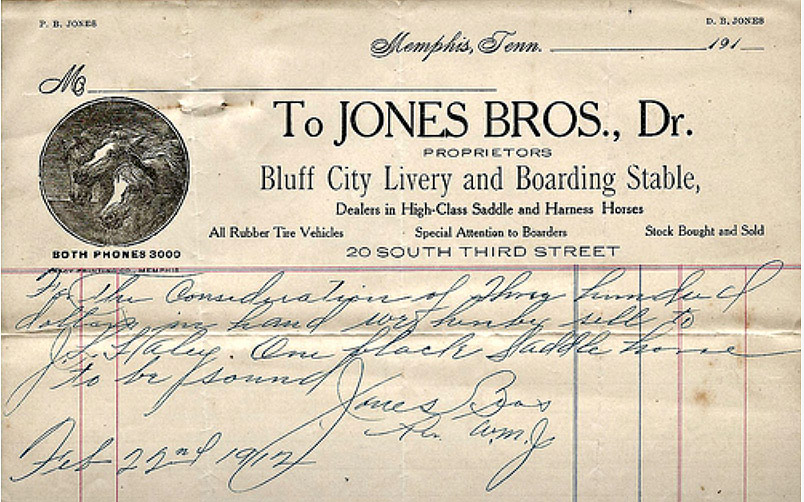 P. B. JONES
D. B. JONES
Memphis, Tenn. 191
M
To JONES BROS., Dr.
PROPRIETORS
Bluff City Livery and Boarding Stable,
Dealers in High-Class Saddle and Harness Horses
All Rubber Tire Vehicles Special Attention to Boarders Stock Bought and Sold
BOTH PHONES 3000
20 SOUTH THIRD STREET
MEMPHIS
For the Consideration of Three hundred
dollars in hand we hereby sell to
J. S. Staley. One black Saddle horse
to be sound
Jones Bros
W.M.J.
Feb 22nd 1912